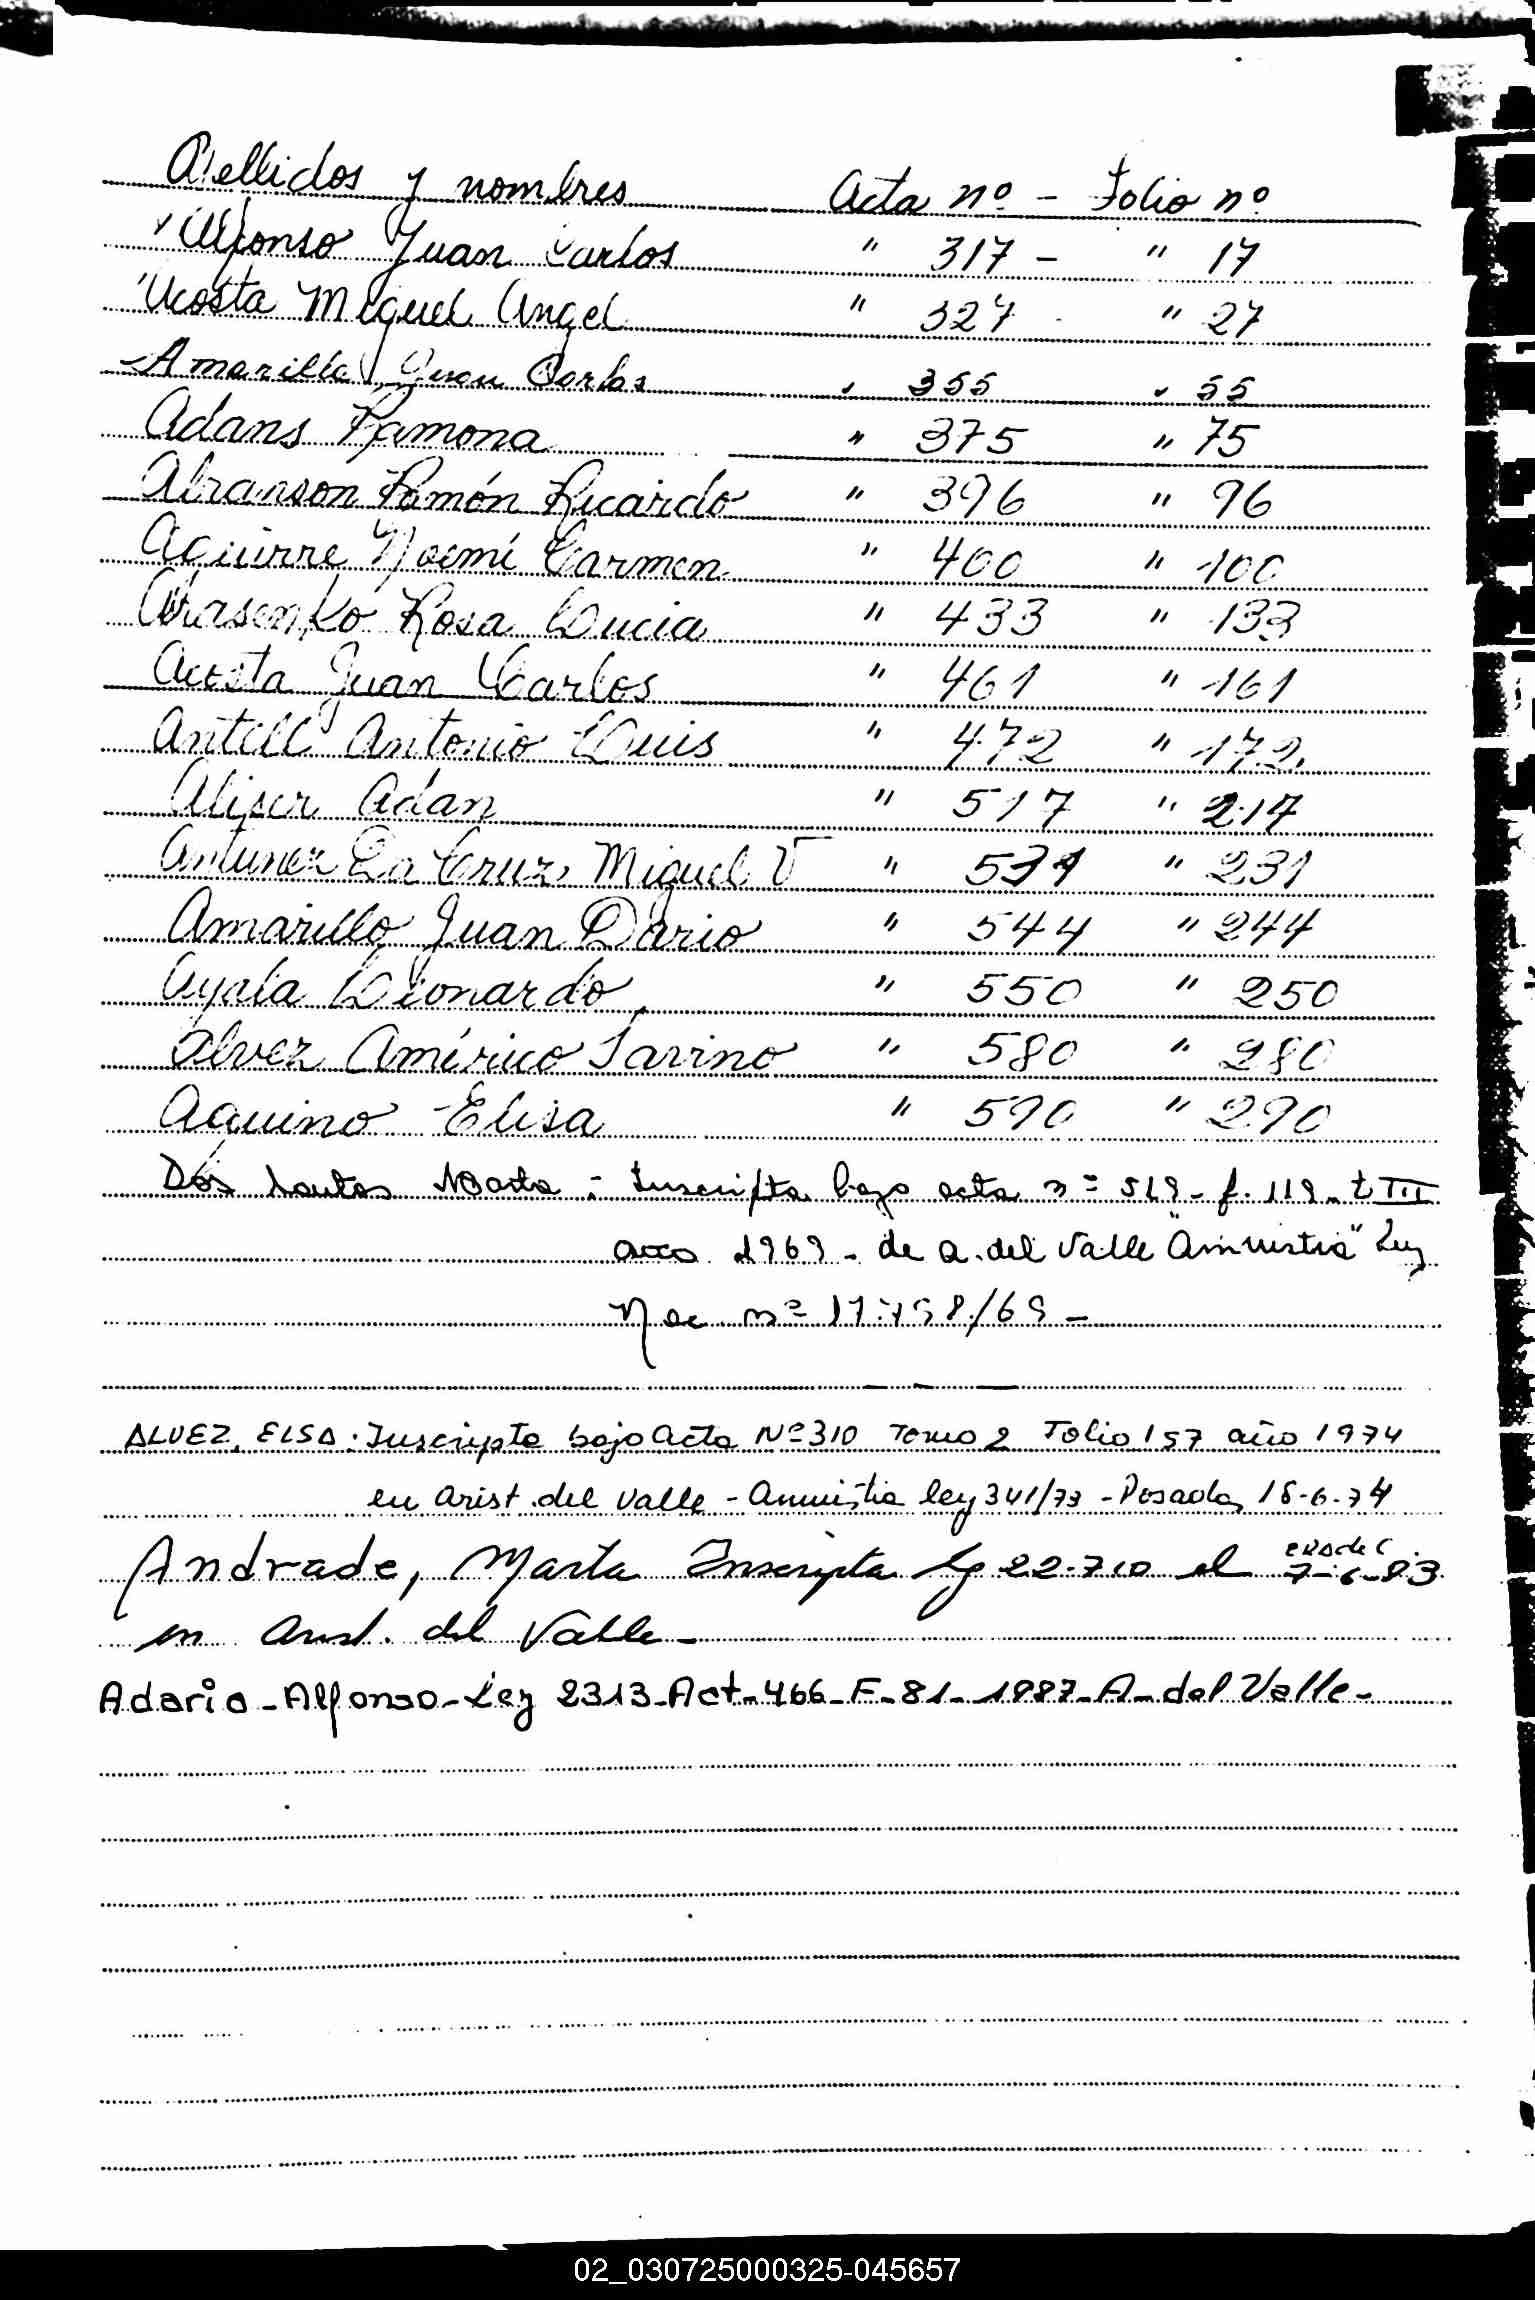 Apellidos y nombres Acta nº - Folio nº
Alfonso Juan Carlos " 317 - " 17
Acosta Miguel Angel " 327 - " 27
Amarilla Juan Carlos " 355 " 55
Adans Ramona " 375 " 75
Abranson Ramón Ricardo " 396 " 96
Aguirre Noemí Carmen " 400 " 100
Rosa Lucia " 433 " 133
Acosta Juan Carlos " 461 " 161
Antill Antonio Luis " 472 " 172.
Aliser Adán " 517 " 217
Antunez La Cruz Miguel V " 531 " 231
Amarillo Juan Dario " 544 " 244
Ayala Leonardo " 550 " 250
Alvez Américo Savino " 580 " 280
Aquino Elisa " 590 " 290
Dos Santos Marta : Inscripta bajo acta nº 519 - f. 119 - t III
año 1969 - de a. del Valle "Amnistia" Ley
Nac. nº
ALVEZ, ELSA . Inscripta bajo Acta Nº 310 Tomo 2 Folio 157 año 1974
en Arist. del Valle - Amnistia ley 341/73 - Posadas, 18-6-74
Andrade, Marta Inscripta Ley 22.710 el 7-6-83
en Arist. del Valle -
Adario - Alfonso - Ley 2313 - Act - 466 - F - 81 - 1987 - A - del Valle -
02_030725000325-045657